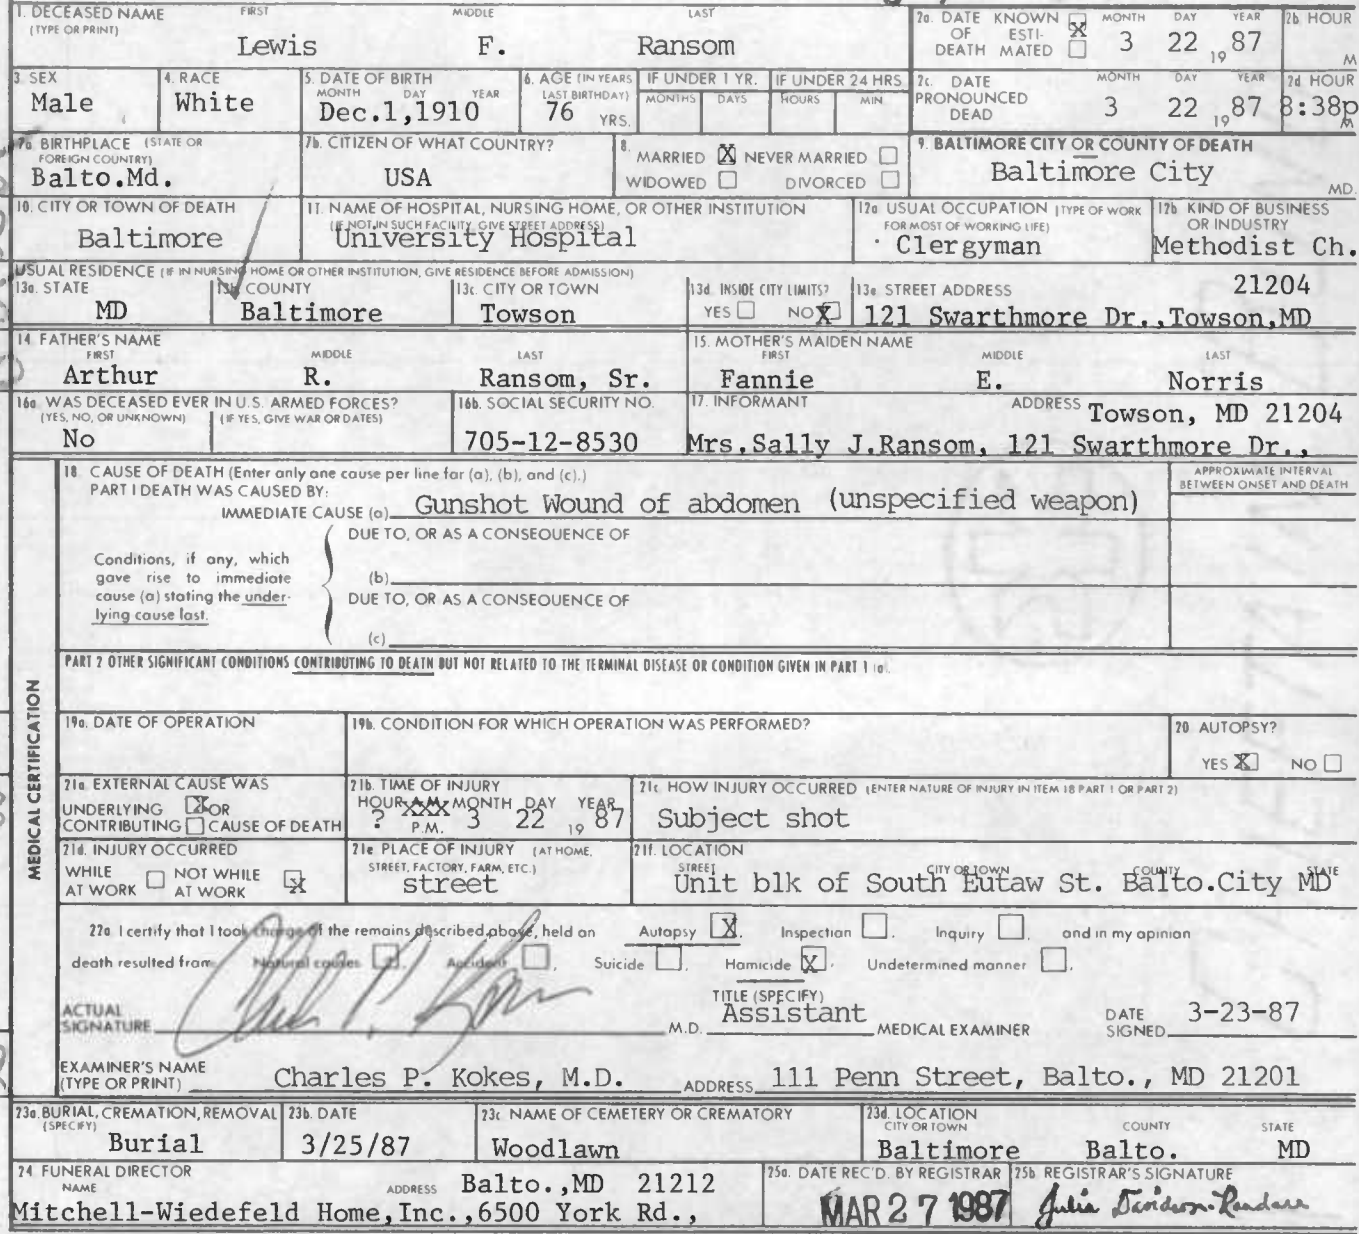 1. DECEASED NAME FIRST MIDDLE LAST
(TYPE OR PRINT)
Lewis F. Ransom
2a. DATE KNOWN ☐ MONTH DAY YEAR
OF ESTI- X
DEATH MATED ☐ 3 22 19 87
2b. HOUR
M
3. SEX
Male
4. RACE
White
5. DATE OF BIRTH
MONTH DAY YEAR
Dec.1,1910
6. AGE (IN YEARS
LAST BIRTHDAY)
76 YRS.
IF UNDER 1 YR.
MONTHS DAYS
IF UNDER 24 HRS
HOURS MIN
2c. DATE MONTH DAY YEAR
PRONOUNCED
DEAD 3 22 19 87
2d HOUR
8:38p
M
7a. BIRTHPLACE (STATE OR
FOREIGN COUNTRY)
Balto.Md.
7b. CITIZEN OF WHAT COUNTRY?
USA
8.
MARRIED X NEVER MARRIED ☐
WIDOWED ☐ DIVORCED ☐
9. BALTIMORE CITY OR COUNTY OF DEATH
Baltimore City
MD.
10. CITY OR TOWN OF DEATH
Baltimore
11. NAME OF HOSPITAL, NURSING HOME, OR OTHER INSTITUTION
(IF NOT IN SUCH FACILITY, GIVE STREET ADDRESS)
University Hospital
12a USUAL OCCUPATION (TYPE OF WORK
FOR MOST OF WORKING LIFE)
Clergyman
12b KIND OF BUSINESS
OR INDUSTRY
Methodist Ch.
USUAL RESIDENCE (IF IN NURSING HOME OR OTHER INSTITUTION, GIVE RESIDENCE BEFORE ADMISSION)
13a. STATE
MD
13b. COUNTY
Baltimore
13c. CITY OR TOWN
Towson
13d. INSIDE CITY LIMITS?
YES ☐ NO X
13e STREET ADDRESS 21204
121 Swarthmore Dr.,Towson,MD
14. FATHER'S NAME
FIRST MIDDLE LAST
Arthur R. Ransom, Sr.
15. MOTHER'S MAIDEN NAME
FIRST MIDDLE LAST
Fannie E. Norris
16a. WAS DECEASED EVER IN U.S. ARMED FORCES?
(YES, NO, OR UNKNOWN) (IF YES, GIVE WAR OR DATES)
No
16b. SOCIAL SECURITY NO.
705-12-8530
17. INFORMANT ADDRESS Towson, MD 21204
Mrs.Sally J.Ransom, 121 Swarthmore Dr.,
MEDICAL CERTIFICATION
18 CAUSE OF DEATH (Enter only one cause per line for (a), (b), and (c).)
PART I DEATH WAS CAUSED BY:
IMMEDIATE CAUSE (a) Gunshot Wound of abdomen (unspecified weapon)
APPROXIMATE INTERVAL
BETWEEN ONSET AND DEATH
DUE TO, OR AS A CONSEQUENCE OF
Conditions, if any, which
gave rise to immediate
cause (a) stating the under-
lying cause last.
(b)
DUE TO, OR AS A CONSEQUENCE OF
(c)
PART 2 OTHER SIGNIFICANT CONDITIONS CONTRIBUTING TO DEATH BUT NOT RELATED TO THE TERMINAL DISEASE OR CONDITION GIVEN IN PART 1 (a).
19a. DATE OF OPERATION
19b. CONDITION FOR WHICH OPERATION WAS PERFORMED?
20 AUTOPSY?
YES X NO ☐
21a. EXTERNAL CAUSE WAS
UNDERLYING X OR
CONTRIBUTING ☐ CAUSE OF DEATH
21b. TIME OF INJURY
HOUR A.M. MONTH DAY YEAR
? P.M. 3 22 19 87
21c. HOW INJURY OCCURRED (ENTER NATURE OF INJURY IN ITEM 18 PART 1 OR PART 2)
Subject shot
21d. INJURY OCCURRED
WHILE AT WORK ☐ NOT WHILE AT WORK X
21e. PLACE OF INJURY (AT HOME,
STREET, FACTORY, FARM, ETC.)
street
21f. LOCATION
STREET CITY OR TOWN COUNTY STATE
Unit blk of South Eutaw St. Balto.City MD
22a I certify that I took charge of the remains described above, held an Autopsy X, Inspection ☐, Inquiry ☐, and in my opinion
death resulted from Natural causes ☐, Accident ☐, Suicide ☐, Homicide X, Undetermined manner ☐.
ACTUAL
SIGNATURE M.D.
TITLE (SPECIFY)
Assistant MEDICAL EXAMINER
DATE
SIGNED 3-23-87
EXAMINER'S NAME
(TYPE OR PRINT) Charles P. Kokes, M.D. ADDRESS 111 Penn Street, Balto., MD 21201
23a. BURIAL, CREMATION, REMOVAL
(SPECIFY)
Burial
23b. DATE
3/25/87
23c. NAME OF CEMETERY OR CREMATORY
Woodlawn
23d. LOCATION
CITY OR TOWN COUNTY STATE
Baltimore Balto. MD
24 FUNERAL DIRECTOR
NAME ADDRESS Balto.,MD 21212
Mitchell-Wiedefeld Home,Inc.,6500 York Rd.,
25a. DATE REC'D. BY REGISTRAR
MAR 27 1987
25b. REGISTRAR'S SIGNATURE
Julia Davidson-Randall